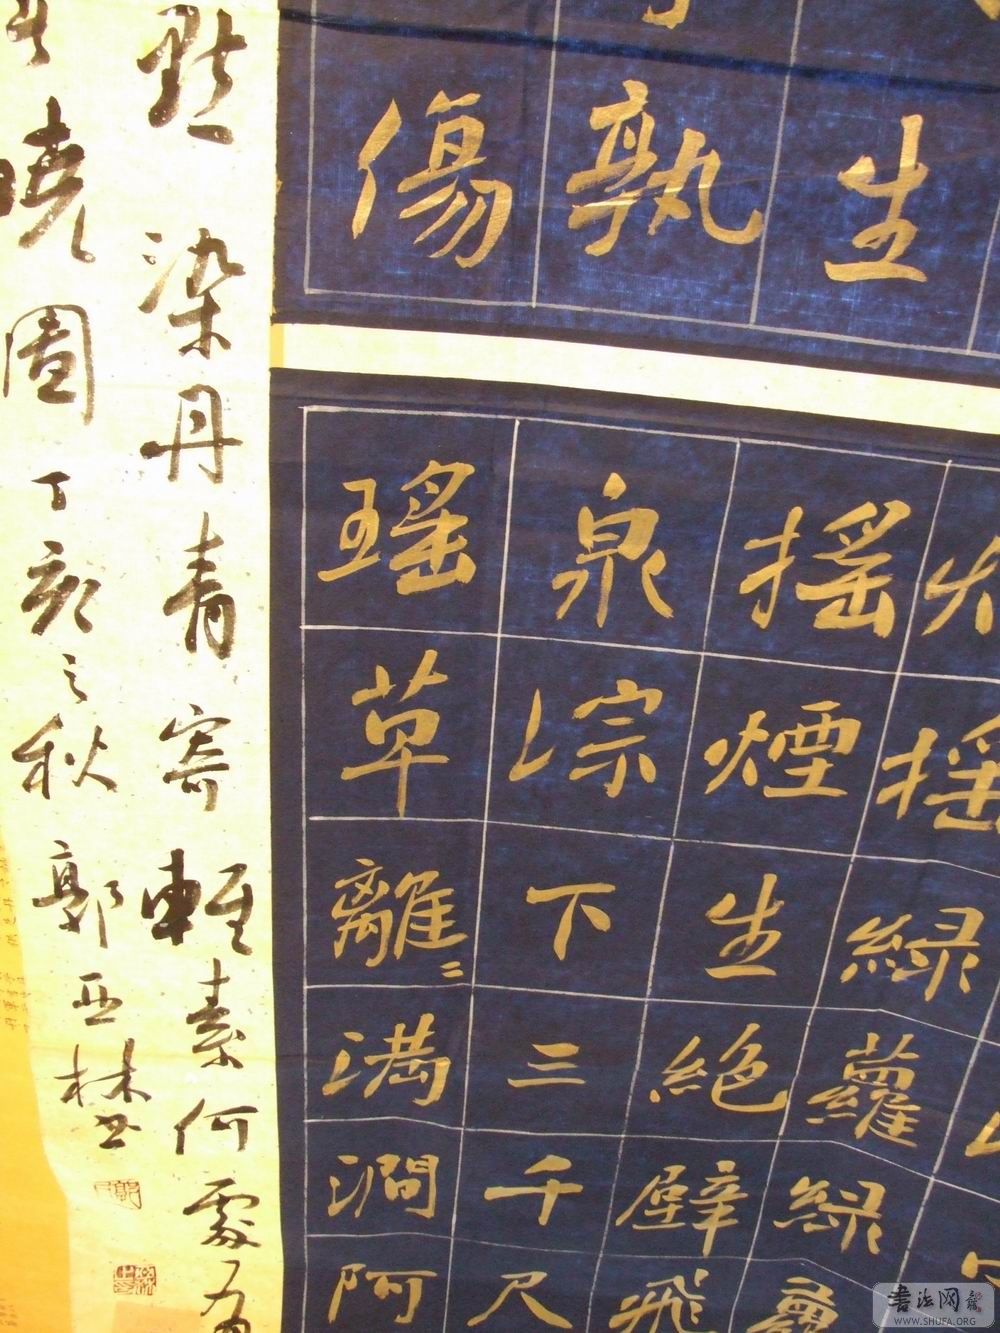 生
孰
傷
摇綠蘿綠
摇煙生絕壁飛
泉淙下三千尺
瑤草離二滿澗阿
點染丹青寄輕素何處
曉圖丁亥之秋郭亞林書
書法网
WWW.SHUFA.ORG